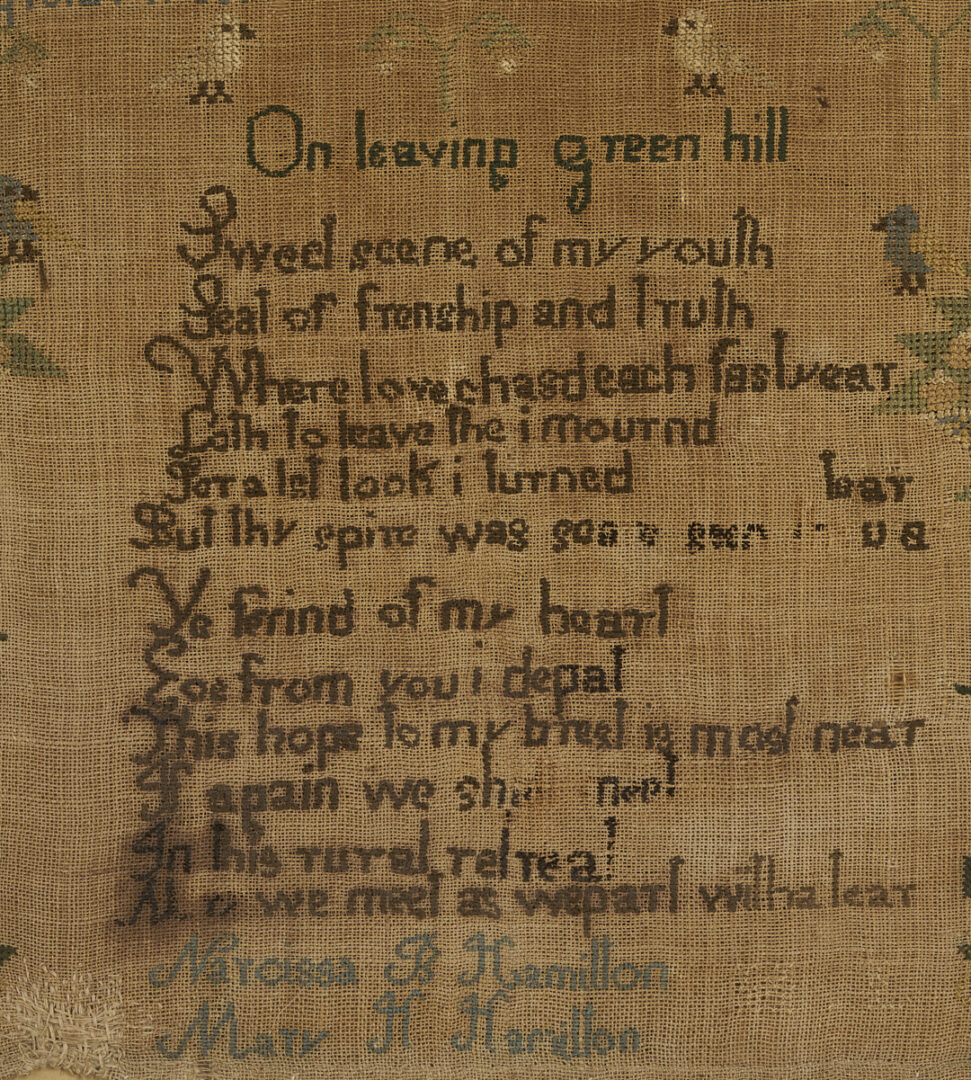 On leaving green hill
Sweet scene of my youth
Seat of frenship and truth
Where love chasd each fast year
Loth to leave the i mournd
For a lst look i turned
But thy spire was scar s seen tear
Ye ferind of my heart
Eos from you i depat
This hope to my brest is most near
If again we meet
In this rural retreat
we meet as we part with a tear
Narcissa B Hamilton
Mary H Hamilton